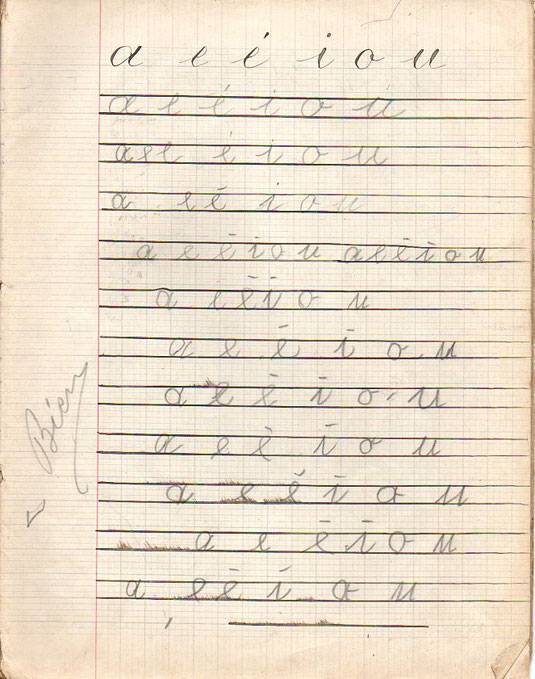 a e é i o u
a e é i o u
a e e é i o u
a e é i o u
a e é i o u a e é i o u
a e é i o u
a e é i o u
a e é i o u
a e é i o u
a e é i o u
a e é i o u
a e é i o u
Bien